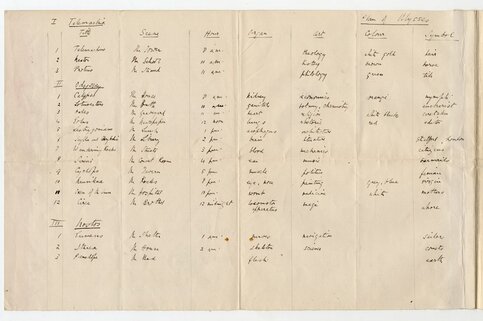 I Telemachia Plan of Ulysses
Title Scene Hour Organ Art Colour Symbol
1 Telemachus The Tower 8 am theology white gold heir
2 Nestor The School 10 am history brown horse
3 Proteus The Strand 11 am philology green tide
II Odyssey
1 Calypso The House 8 am kidney economics orange nymph
2 Lotuseaters The Bath 10 am genitals botany, chemistry eucharist
3 Hades The Graveyard 11 am heart religion white black caretaker
4 Eolus The Newspaper 12 noon lungs rhetoric red editor
5 Lestrygonians The Lunch 1 pm esophagus architecture constables
6 The Library 2 pm brain literature Stratford, London
7 Wandering Rocks The Streets 3 pm blood mechanics citizens
8 Sirens The Concert Room 4 pm ear music barmaids
9 Cyclops The Tavern 5 pm muscle politics fenian
10 Nausikaa The Rocks 8 pm eye, nose painting grey, blue virgin
11 Oxen of the Sun The Hospital 10 pm womb medicine white mothers
12 Circe The Brothel 12 midnight locomotor apparatus magic whore
III Nostos
1 Eumaeus The Shelter 1 am nerves navigation sailors
2 Ithaca The House 2 am skeleton science comets
3 Penelope The Bed flesh earth